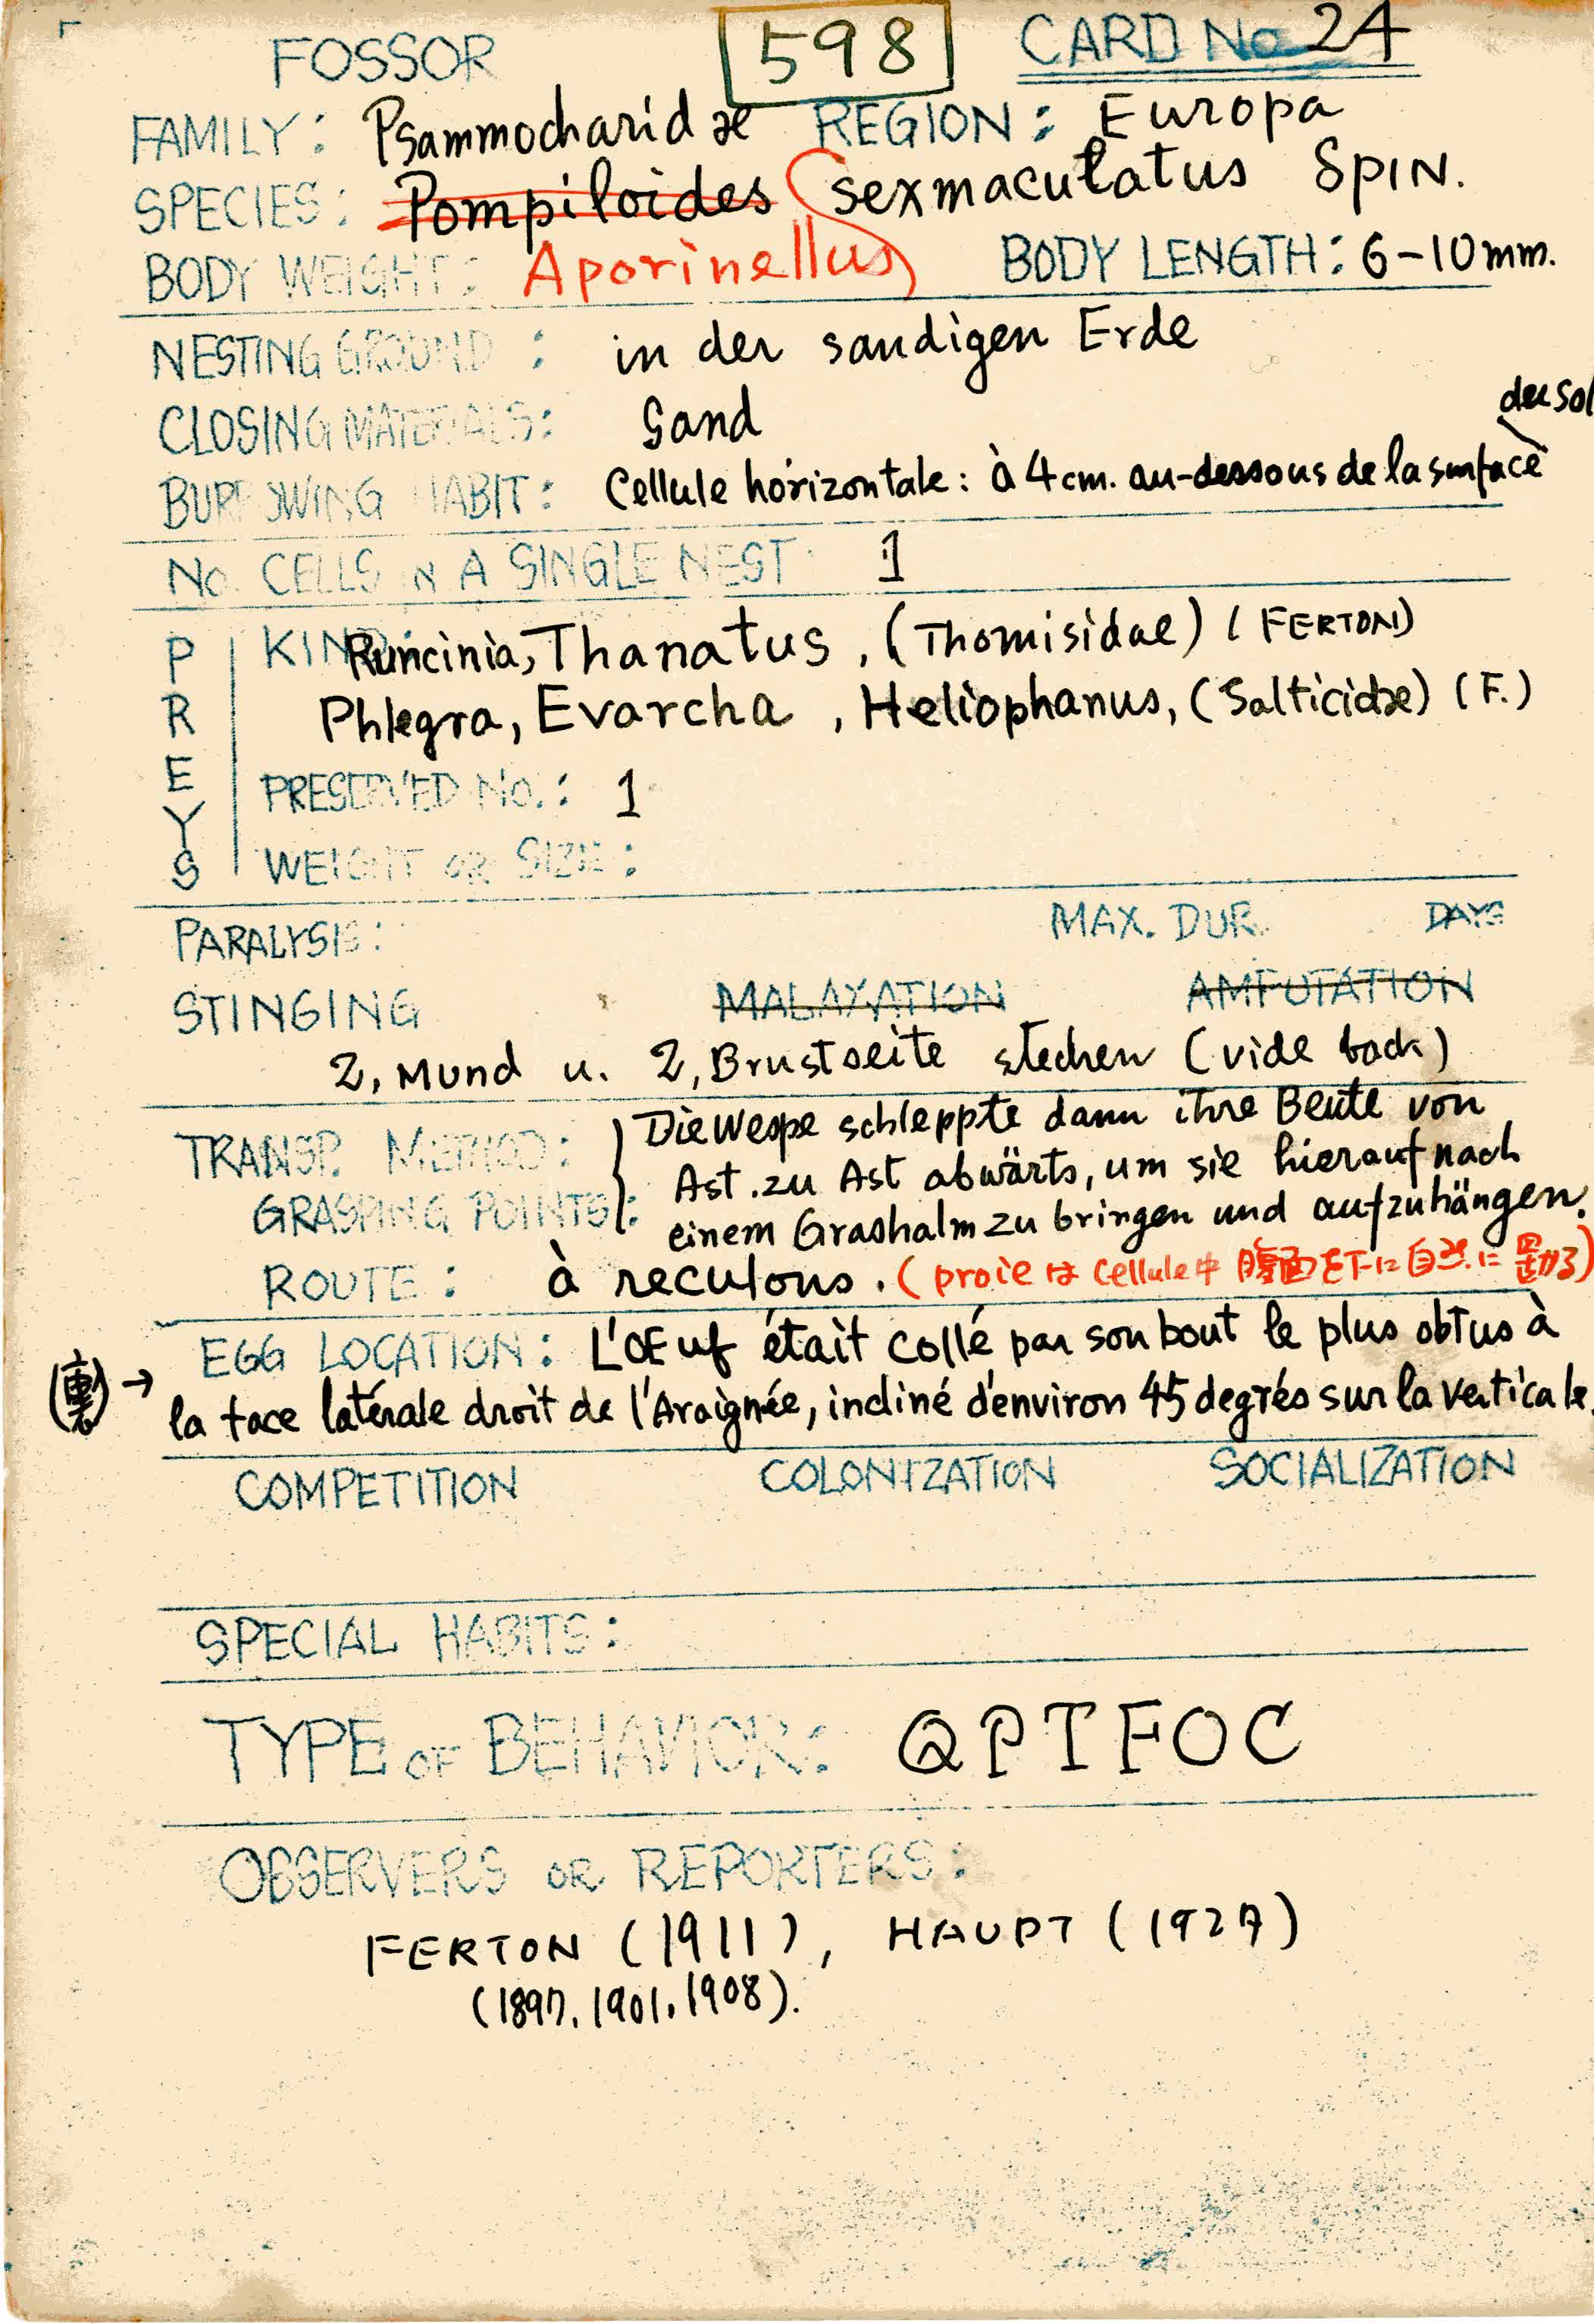 FOSSOR 598 CARD No 24
FAMILY: Psammocharidæ REGION: Europa
SPECIES: Pompiloides sexmaculatus SPIN.
BODY WEIGHT: Aporinellus BODY LENGTH: 6-10mm.
NESTING GROUND: in der sandigen Erde
CLOSING MATERIALS: Sand
du sol
BURROWING HABIT: Cellule horizontale: à 4cm. au-dessous de la surface
No. CELLS IN A SINGLE NEST 1
PREYS
KIND: Runcinia, Thanatus, (Thomisidae) (FERTON)
Phlegra, Evarcha, Heliophanus, (Salticidæ) (F.)
PRESERVED No.: 1
WEIGHT OR SIZE:
PARALYSIS: MAX. DUR. DAYS
STINGING MALAXATION AMPUTATION
2, Mund u. 2, Brustseite stechen (vide back)
TRANSP. METHOD: Die Wespe schleppte dann ihre Beute von
Ast zu Ast abwärts, um sie hierauf nach
GRASPING POINTS: einem Grashalm zu bringen und aufzuhängen.
ROUTE: à reculons. (proie は cellule中 腹面を下に自然に置かる)
EGG LOCATION: L'OEuf était collé par son bout le plus obtus à
(裏)→ la face latérale droit de l'Araignée, incliné d'environ 45 degrés sur la verticale.
COMPETITION COLONIZATION SOCIALIZATION
SPECIAL HABITS:
TYPE OF BEHAVIOR: QPTFOC
OBSERVERS OR REPORTERS:
FERTON (1911), HAUPT (1927)
(1897, 1901, 1908).